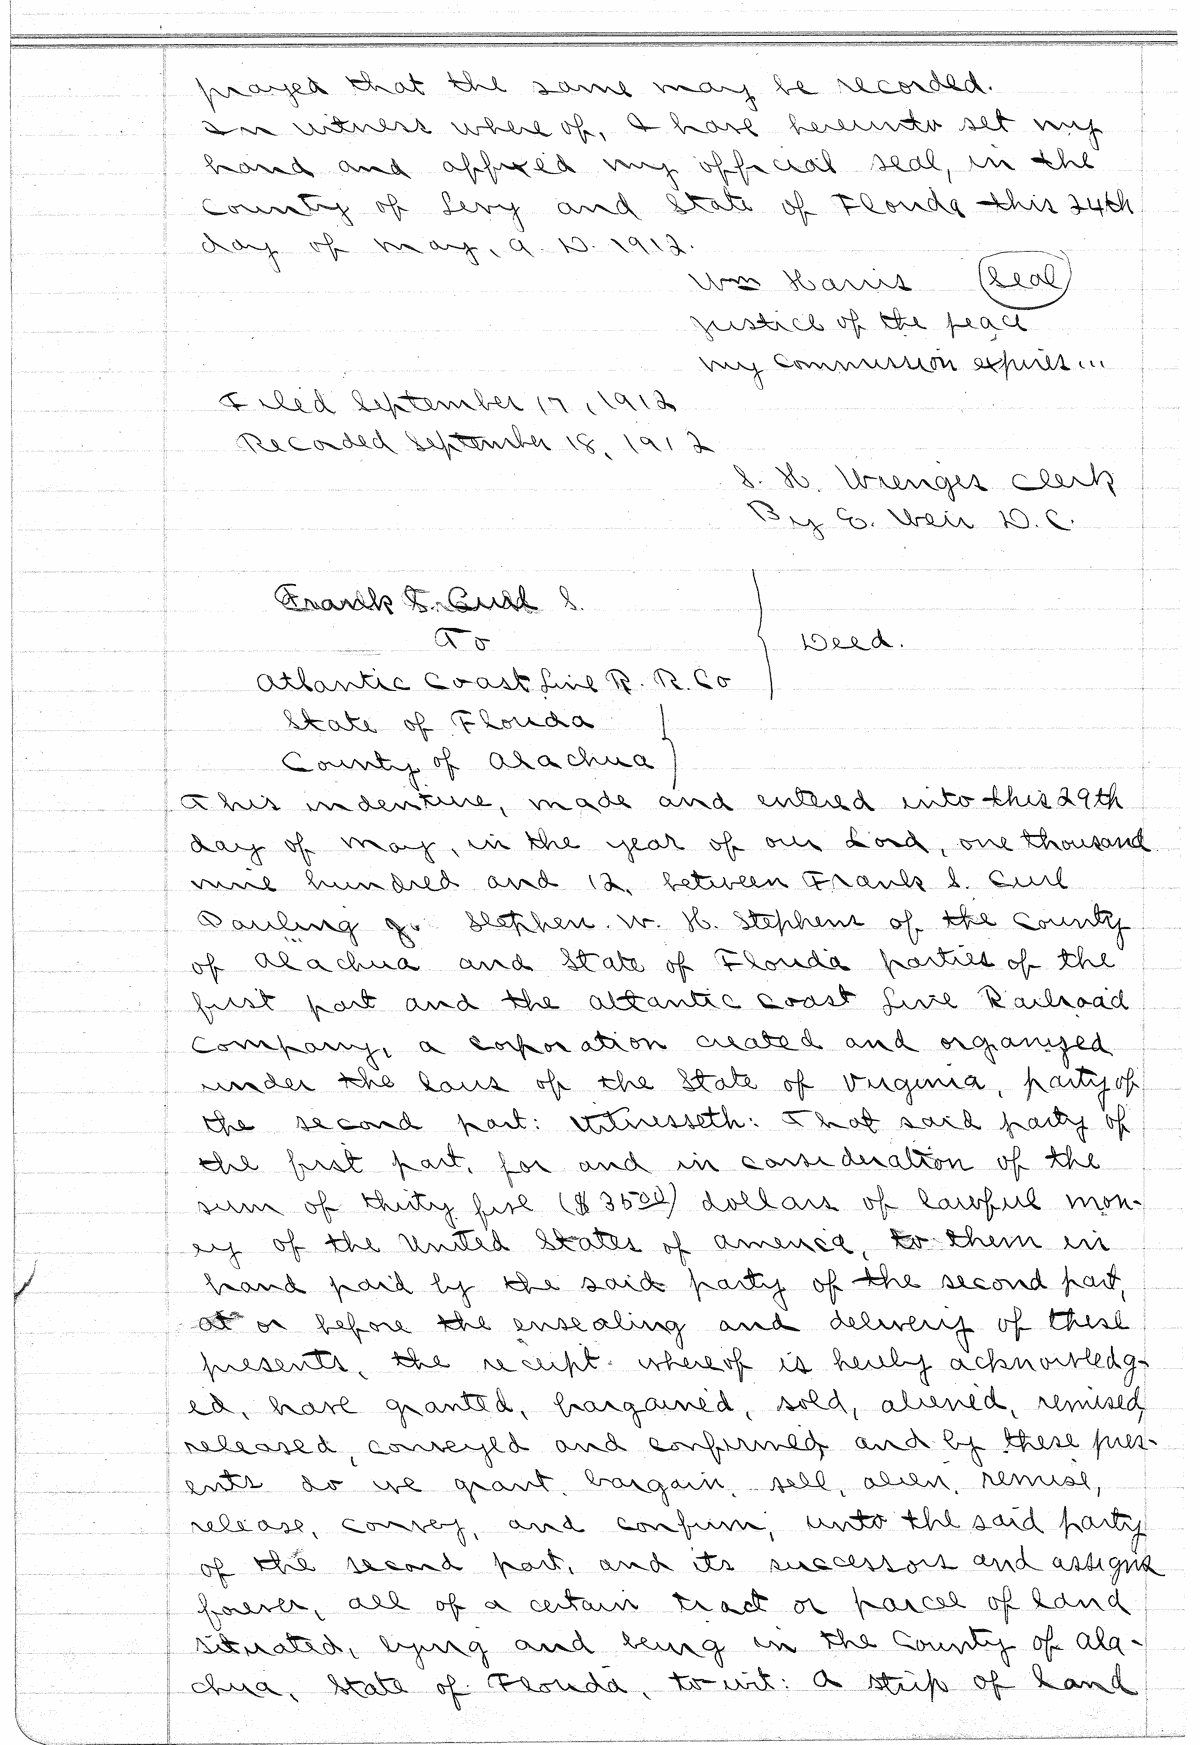 prayed that the same may be recorded.
In witness where of, I have hereunto set my
hand and affixed my official seal, in the
County of Levy and State of Florida this 24th
day of May, A. D. 1912.
Wm Harris (Seal)
Justice of the peace
my commission expires...
Filed September 17, 1912
Recorded September 18, 1912
S. H. Wienges Clerk
By E. Weir D. C.
Frank S. Curl S.
To
Deed.
Atlantic Coast Line R. R. Co
State of Florida
County of Alachua
This indenture, made and entered into this 29th
day of May, in the year of our Lord, one thousand
nine hundred and 12, between Frank S. Curl
Stephen. W. H. Stephens of the County
of Alachua and State of Florida parties of the
first part and the Atlantic Coast Line Railroad
Company, a corporation created and organized
under the laws of the State of Virginia, party of
the second part: Witnesseth: That said party of
the first part, for and in consideration of the
sum of thirty five ($35.00) dollars of lawful mon-
ey of the United States of America, to them in
hand paid by the said party of the second part,
at or before the ensealing and delivery of these
presents, the receipt whereof is hereby acknowledg-
ed, have granted, bargained, sold, aliened, remised,
released, conveyed and confirmed, and by these pres-
ents do we grant, bargain, sell, alien, remise,
release, convey, and confirm, unto the said party
of the second part, and its successors and assigns
forever, all of a certain tract or parcel of land
situated, lying and being in the County of Ala-
chua, State of Florida, to-wit: A strip of land